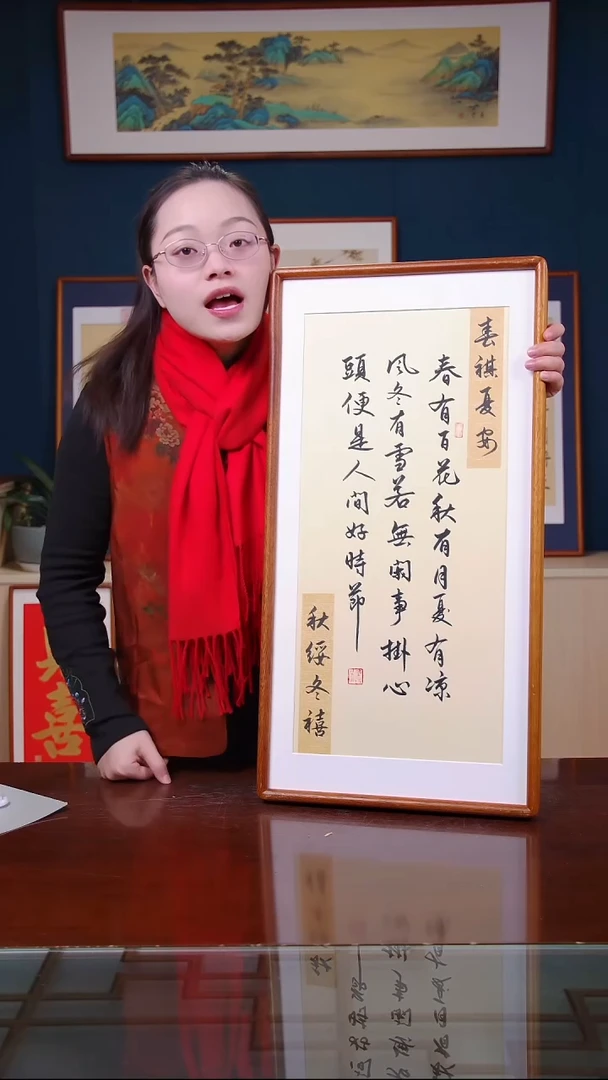 春祺夏安
春有百花秋有月夏有凉
风冬有雪若無閑事掛心
頭便是人间好時節
秋綏冬禧
喜